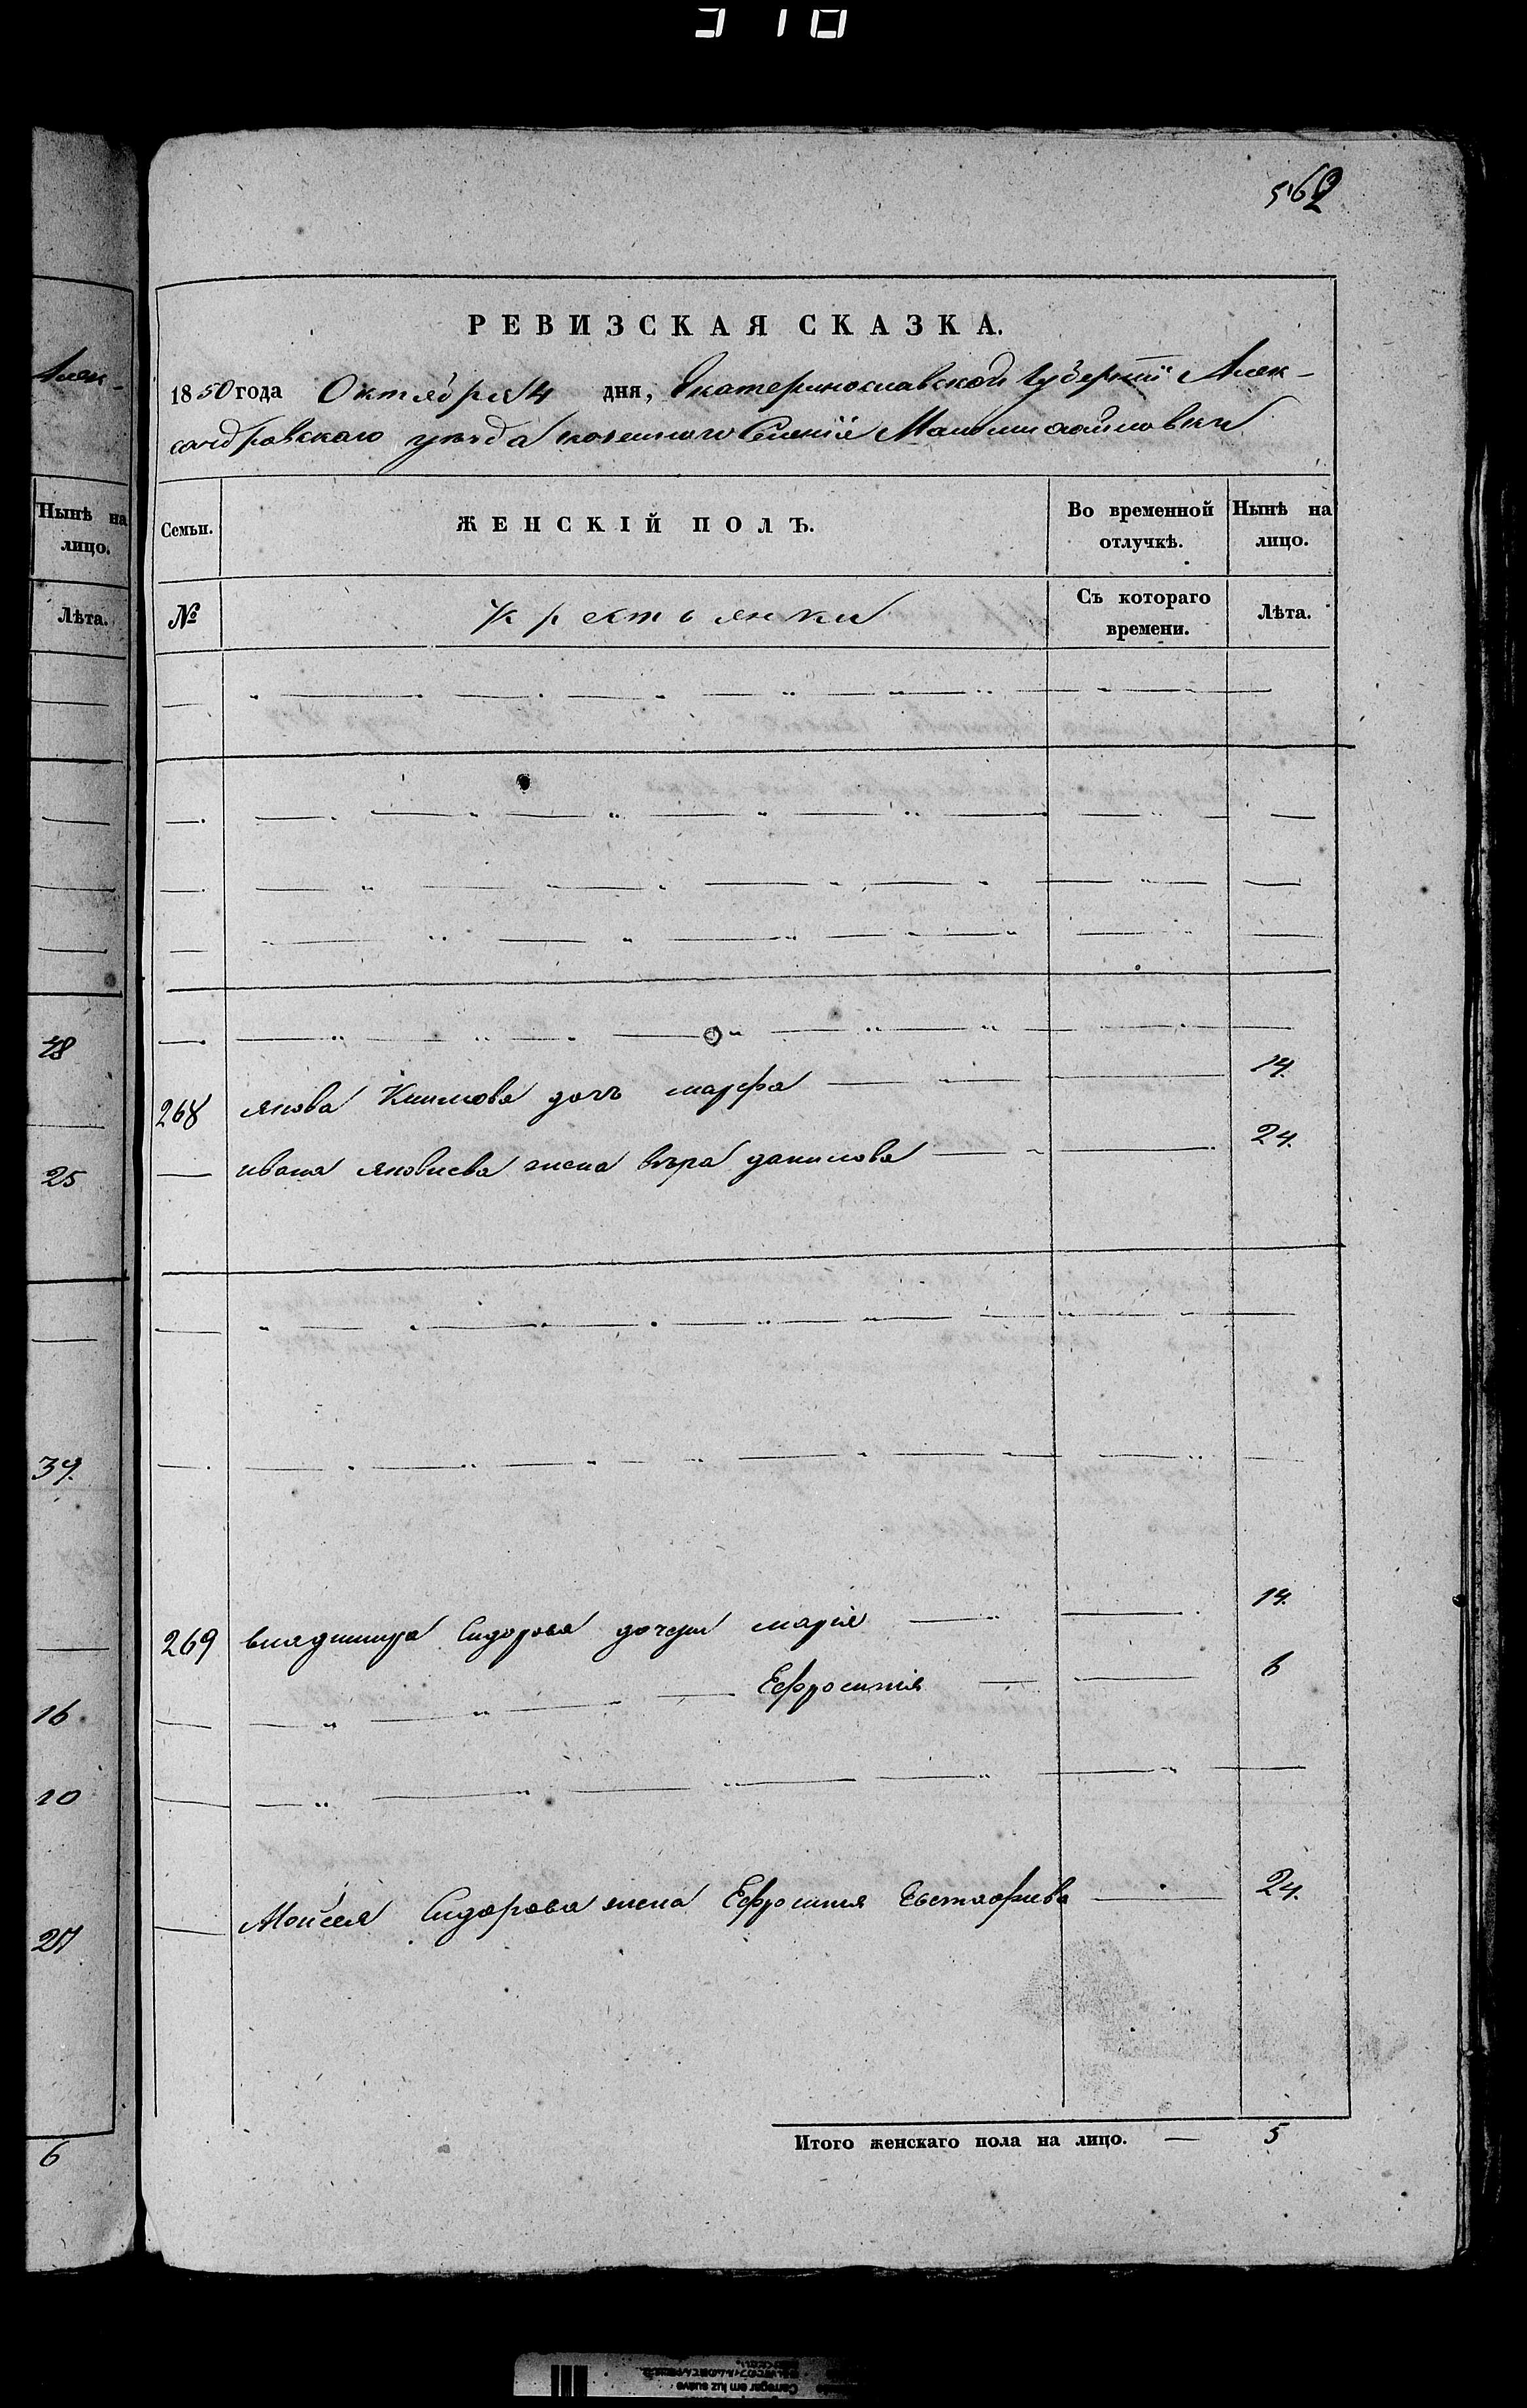 310
562
РЕВИЗСКАЯ СКАЗКА.
1850 года Октября 4 дня, Екатеринославской Губерніи Алек-
сандровскаго уезда казенного Селенія Маломихайловки
Семьи. ЖЕНСКІЙ ПОЛЪ. Во временной отлучкѣ. Нынѣ на лицо.
№ Крестьянки Съ котораго времени. Лѣта.
268 якова Климова дочь марфа 14.
ивана яковлева жена вѣра данилова 24.
269 владимира Сидорова дочери марія 14.
Ефросинія 6
Моисея Сидорова жена Ефросиния Евстафиева 24.
Итого женскаго пола на лицо. 5
Алек-
Нынѣ на
лицо.
Лѣта.
48
25
39.
16
10
27
6